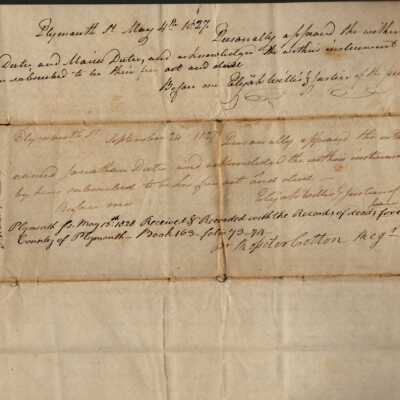 Plymouth Ss May 4th 1827. Personally appeared the within
and Maria and acknowledged the within instrument
subscribed to be their free act and deed
Before me Elijah Willis Justice of the
Plymouth Ss. September 24 1827 Personally appeared the
named Jonathan and acknowledged the within instrument
by him subscribed to be his free act and deed—
Before me Elijah Willis Justice of
Plymouth Ss. May 15th 1828 Received & Recorded with the Records of deeds for
County of Plymouth— Book 163— folio 73-74
Rossiter Cotton Regr